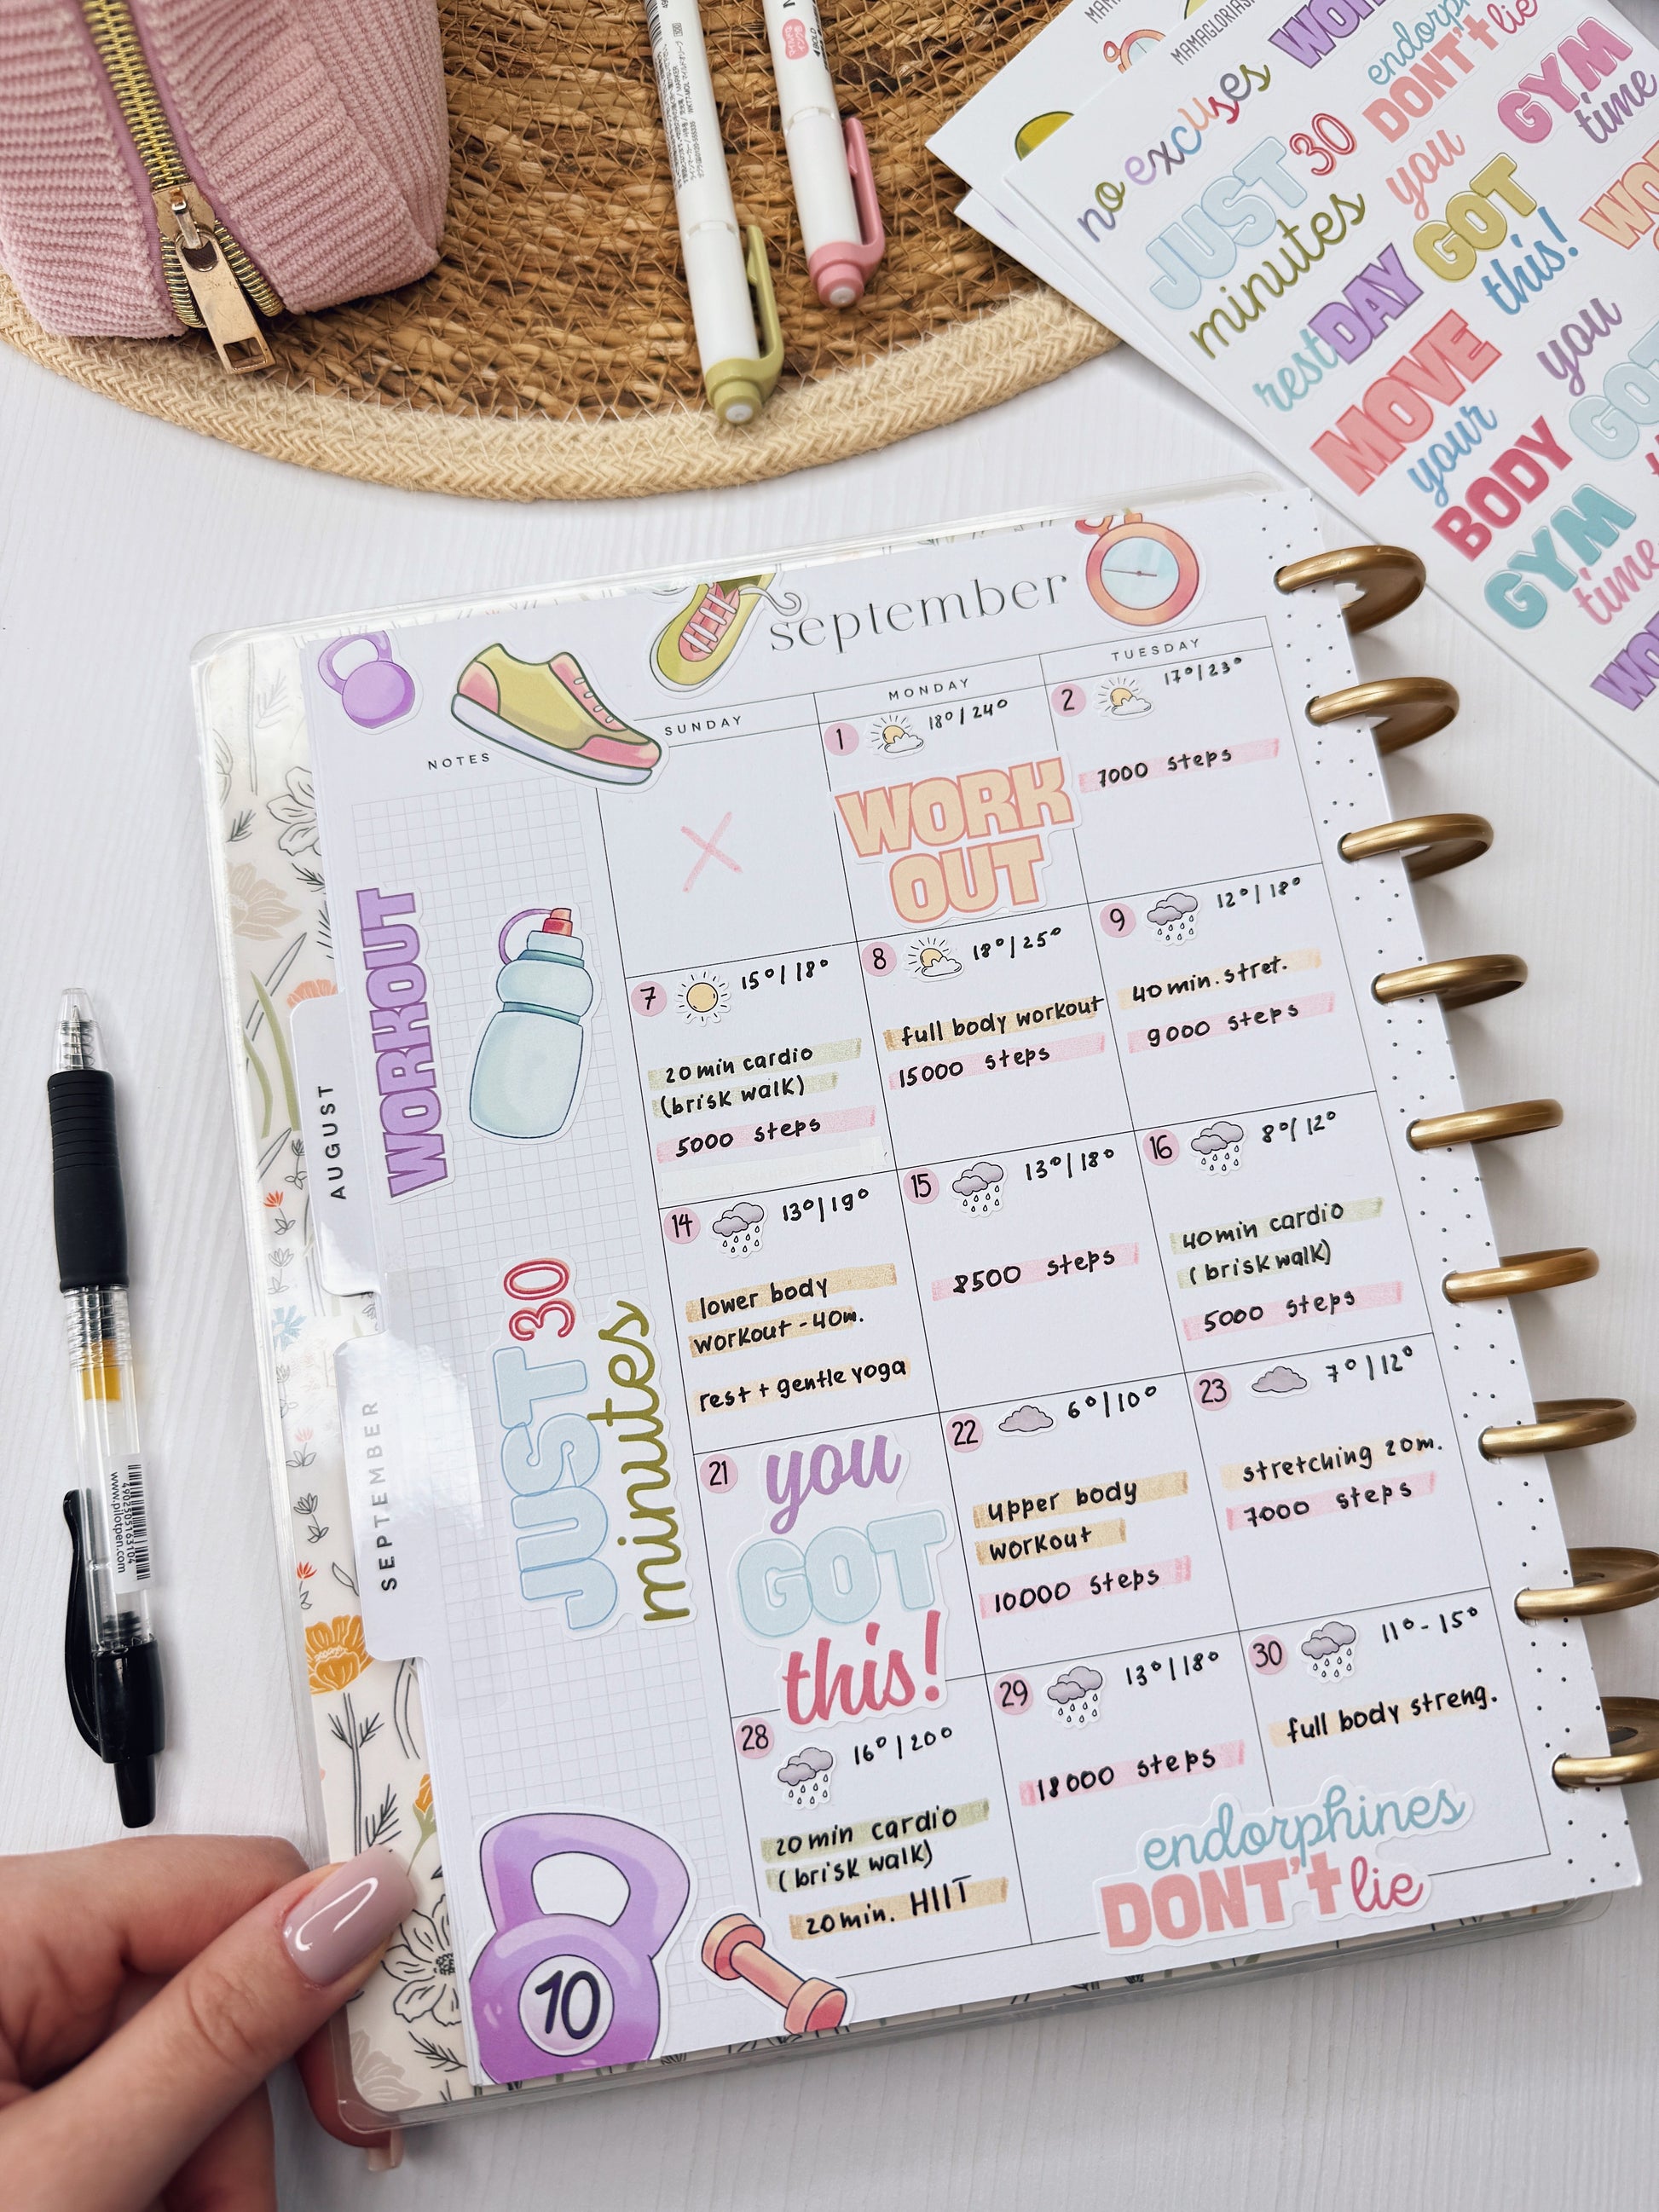 no excuses
JUST 30
minutes
endorph
DON't lie
you
GOT
this!
GYM
time
rest DAY
MOVE
your
BODY
you
GOT
GYM
time
september
NOTES
SUNDAY
MONDAY
TUESDAY
1
18°/24°
WORK
OUT
2
17°/23°
7000 steps
7
15°/18°
20min cardio
(brisk walk)
5000 steps
8
18°/25°
full body workout
15000 steps
9
12°/18°
40min. stret.
9000 steps
14
13°/19°
lower body
workout - 40m.
rest + gentle yoga
15
13°/18°
8500 steps
16
8°/12°
40min cardio
(brisk walk)
5000 steps
21
you
GOT
this!
22
6°/10°
upper body
workout
10000 steps
23
7°/12°
stretching 20m.
7000 steps
28
16°/20°
20min cardio
(brisk walk)
20min. HIIT
29
13°/18°
18000 steps
30
11°-15°
full body streng.
endorphines
DON't lie
WORKOUT
JUST 30
minutes
10
AUGUST
SEPTEMBER
www.pilotpen.com